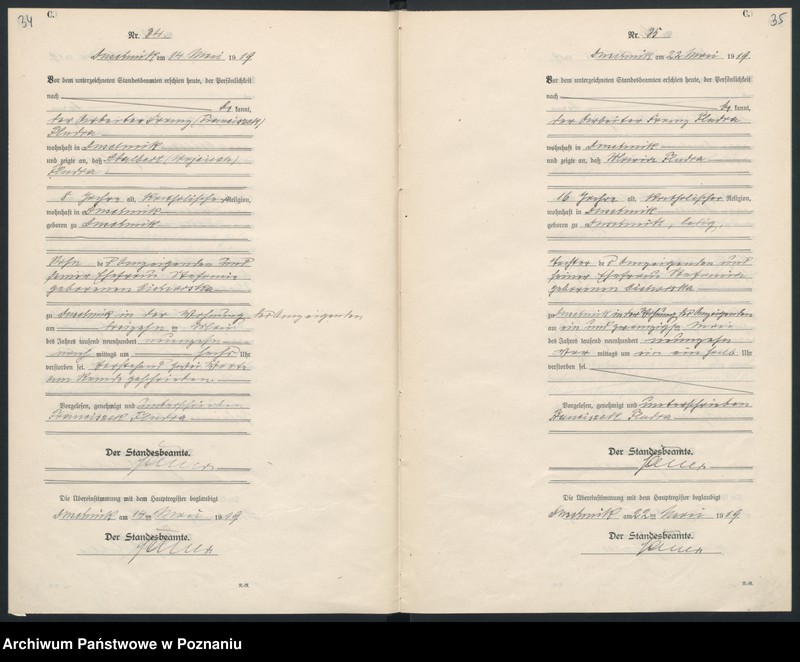 34
C.
Nr. 34
am 14 Mai 1919.
Vor dem unterzeichneten Standesbeamten erschien heute, der Persönlichkeit
nach
be kannt,
der Arbeiter Franz (Franciszek)
Pludra
wohnhaft in
und zeigte an, daß Adalbert (Wojciech)
Pludra
8 Jahre alt, Katholischer Religion,
wohnhaft in
geboren zu
Sohn des Anzeigenden und
seiner Ehefrau Stefanie
geborenen
zu in der Wohnung des Anzeigenden
am dreizehn Mai
des Jahres tausend neunhundert neunzehn
nach mittags um sechs Uhr
verstorben sei. Vorstehend zwei Worte
am Rande geschrieben.
Vorgelesen, genehmigt und unterschrieben
Franciszek Pludra
Der Standesbeamte.
Die Übereinstimmung mit dem Hauptregister beglaubigt
am 14ten Mai 1919.
Der Standesbeamte.
35
C.
Nr. 35
am 22 Mai 1919.
Vor dem unterzeichneten Standesbeamten erschien heute, der Persönlichkeit
nach
be kannt,
der Arbeiter Franz Pludra
wohnhaft in
und zeigte an, daß Maria Pludra
16 Jahre alt, Katholischer Religion,
wohnhaft in
geboren zu ledig,
Tochter des Anzeigenden und
seiner Ehefrau Stefanie
geborenen
zu in der Wohnung des Anzeigenden
am ein und zwanzigste Mai
des Jahres tausend neunhundert neunzehn
Vor mittags um ein ein halb Uhr
verstorben sei.
Vorgelesen, genehmigt und unterschrieben
Franciszek Pludra
Der Standesbeamte.
Die Übereinstimmung mit dem Hauptregister beglaubigt
am 22ten Mai 1919.
Der Standesbeamte.
Archiwum Państwowe w Poznaniu